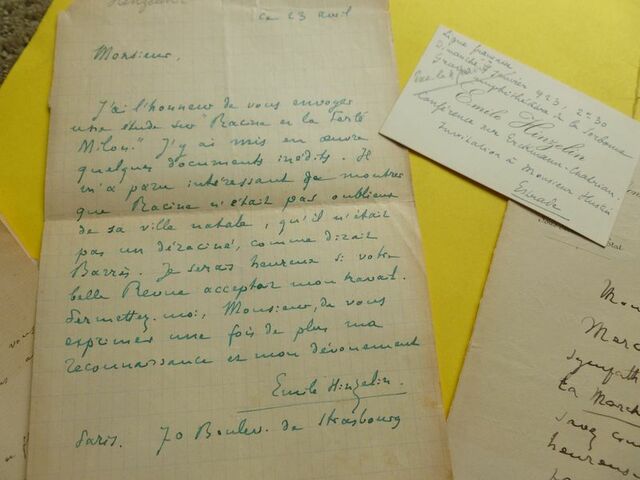 Hinzelin
ce 23 avril
Monsieur,
J'ai l'honneur de vous envoyer
une étude sur "Racine et la Ferté
Milon." J'y ai mis en œuvre
quelques documents inédits. Il
m'a paru intéressant de montrer
que Racine n'était pas oublieux
de sa ville natale, qu'il n'était
pas un déraciné, comme dirait
Barrès. Je serais heureux si votre
belle Revue acceptait mon travail.
Permettez-moi, Monsieur, de vous
exprimer une fois de plus ma
reconnaissance et mon dévouement
Emile Hinzelin.
Paris. 70 Boulev. de Strasbourg
Ligue française
Dimanche 7 janvier 923, 2h30
Grand amphithéâtre de la Sorbonne
Emile Hinzelin
Conférence sur Erckmann-Chatrian
Invitation à Monsieur
Estrade
vous
Mon
Marc
sympath
La March
savez com
heureus